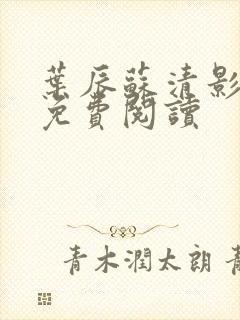 葉辰蘇清影
免費閱讀
青木潤太朗 青